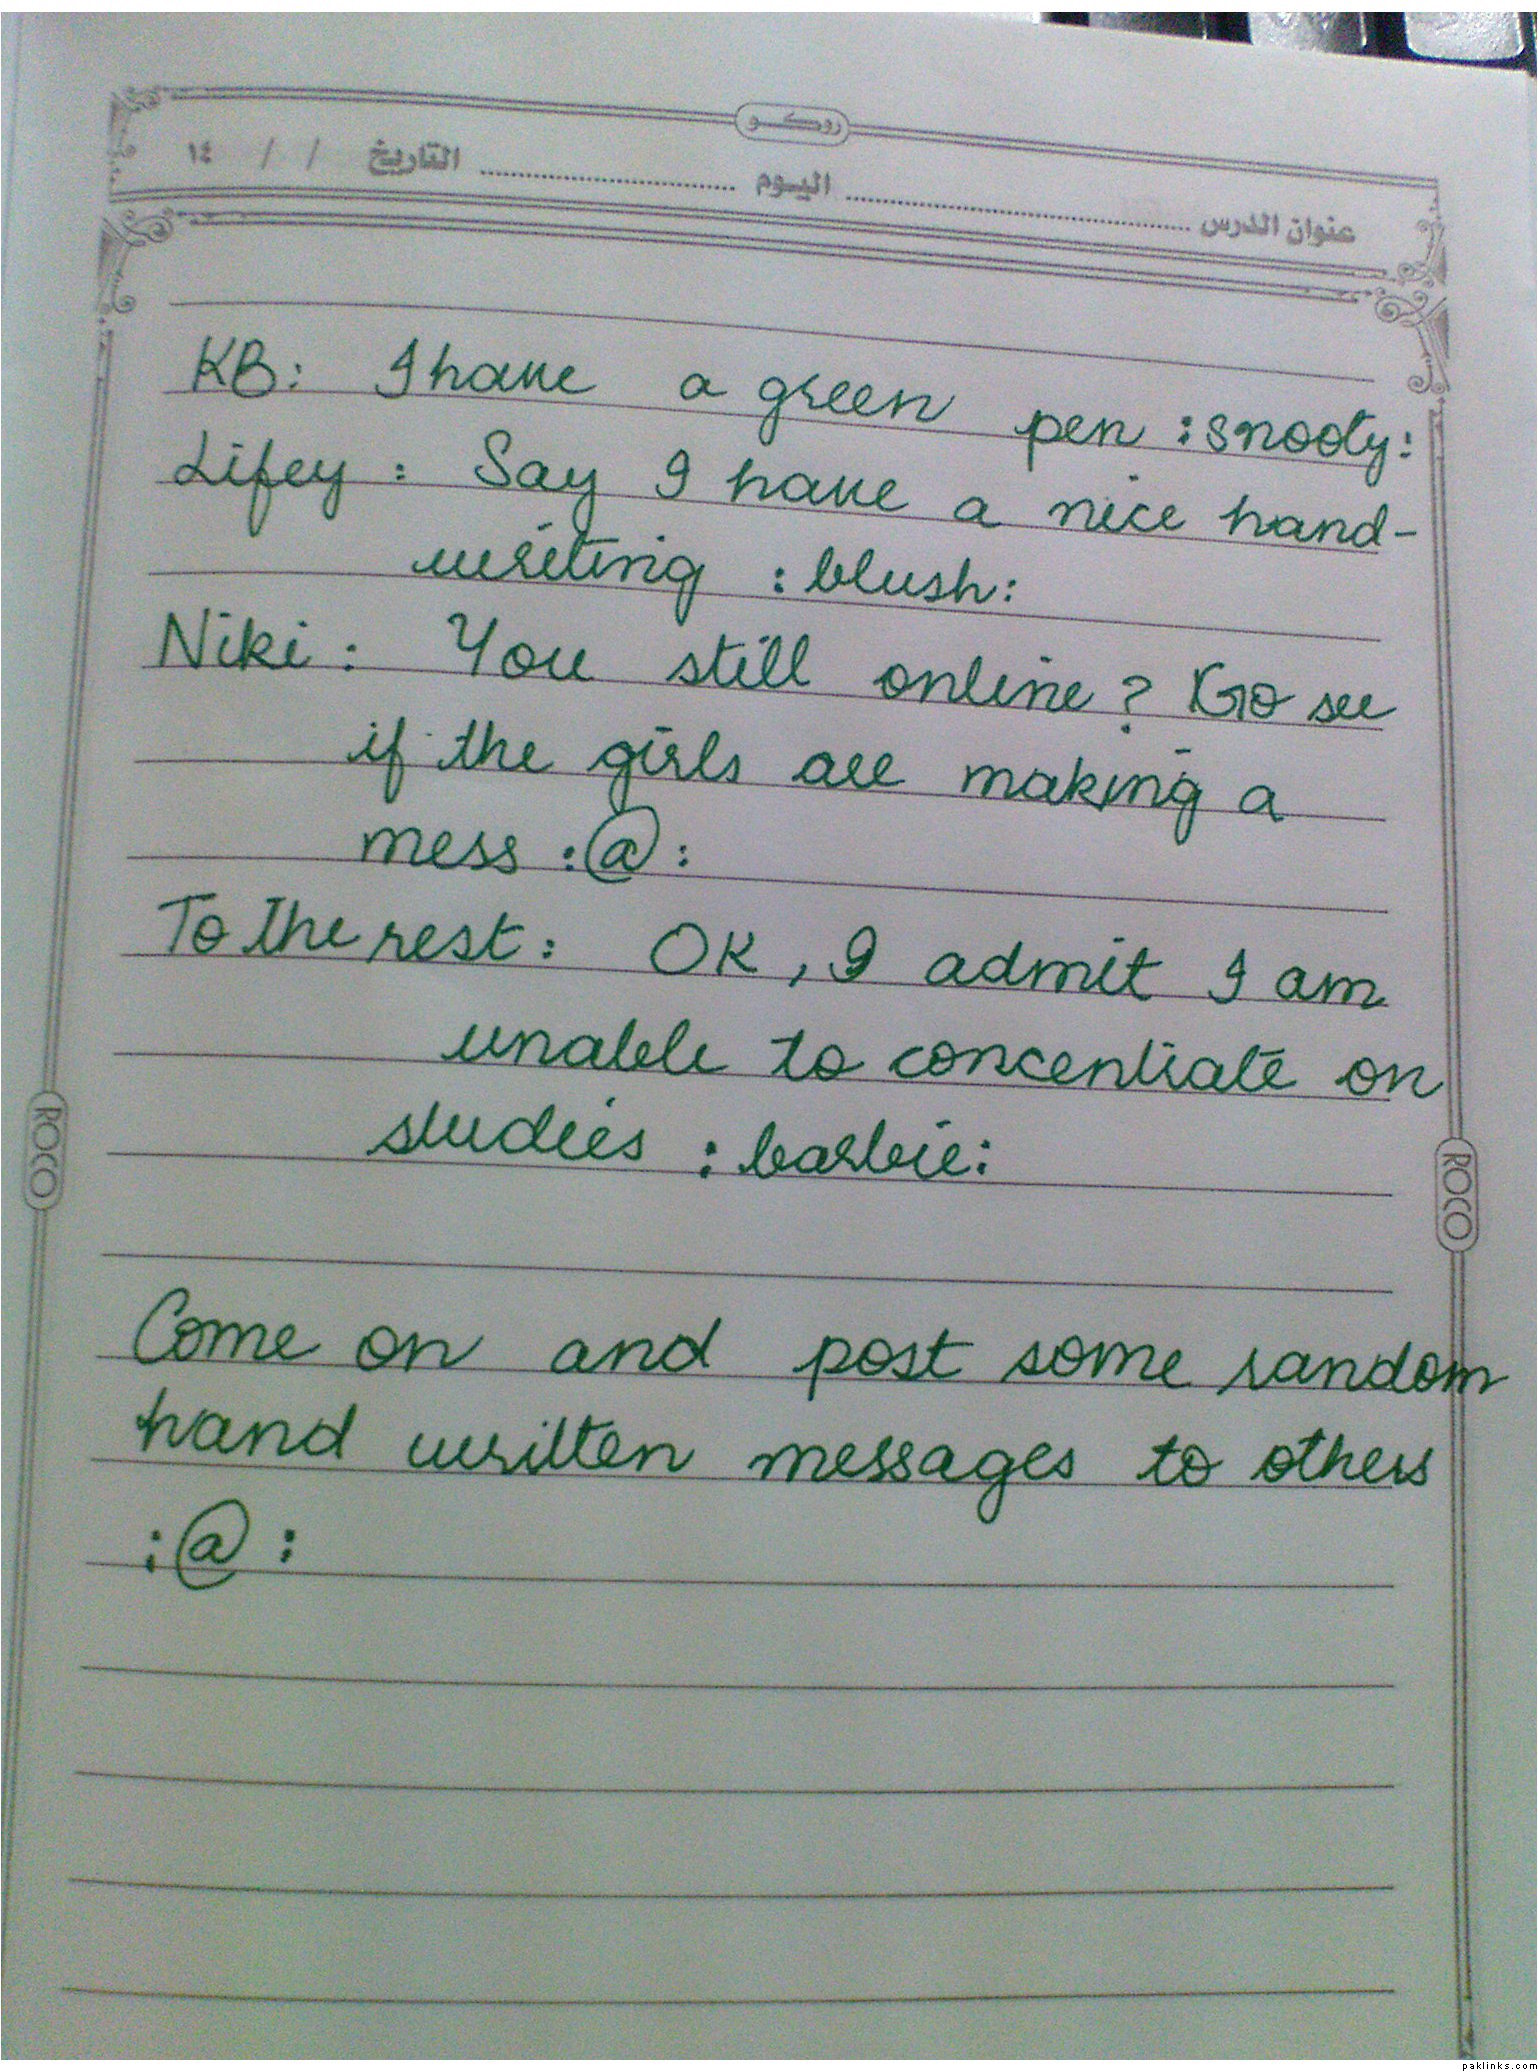 روكو
عنوان الدرس ........ اليوم ........ التاريخ / / ١٤
KB: I have a green pen :snooty:
Lifey : Say I have a nice hand-
writing :blush:
Niki : You still online? Go see
if the girls are making a
mess :@:
To the rest : OK, I admit I am
unable to concentrate on
studies :barbie:
ROCO
ROCO
Come on and post some random
hand written messages to others
:@:
paklinks.com